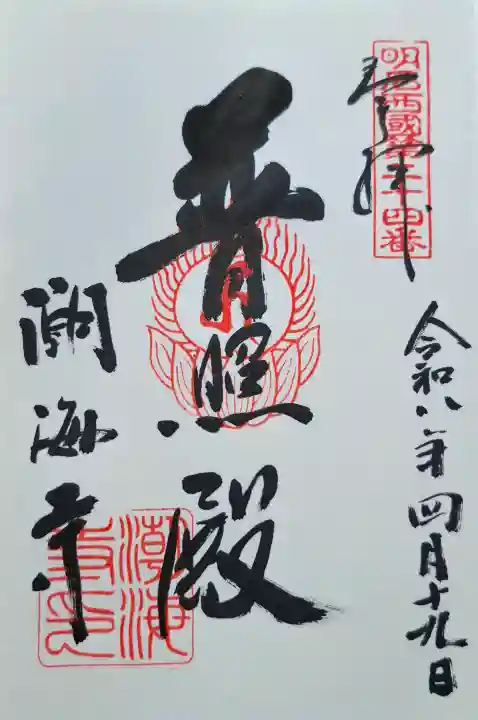 明石西國第二十四番
奉拝
令和八年四月十九日
普照殿
潮海寺
潮海